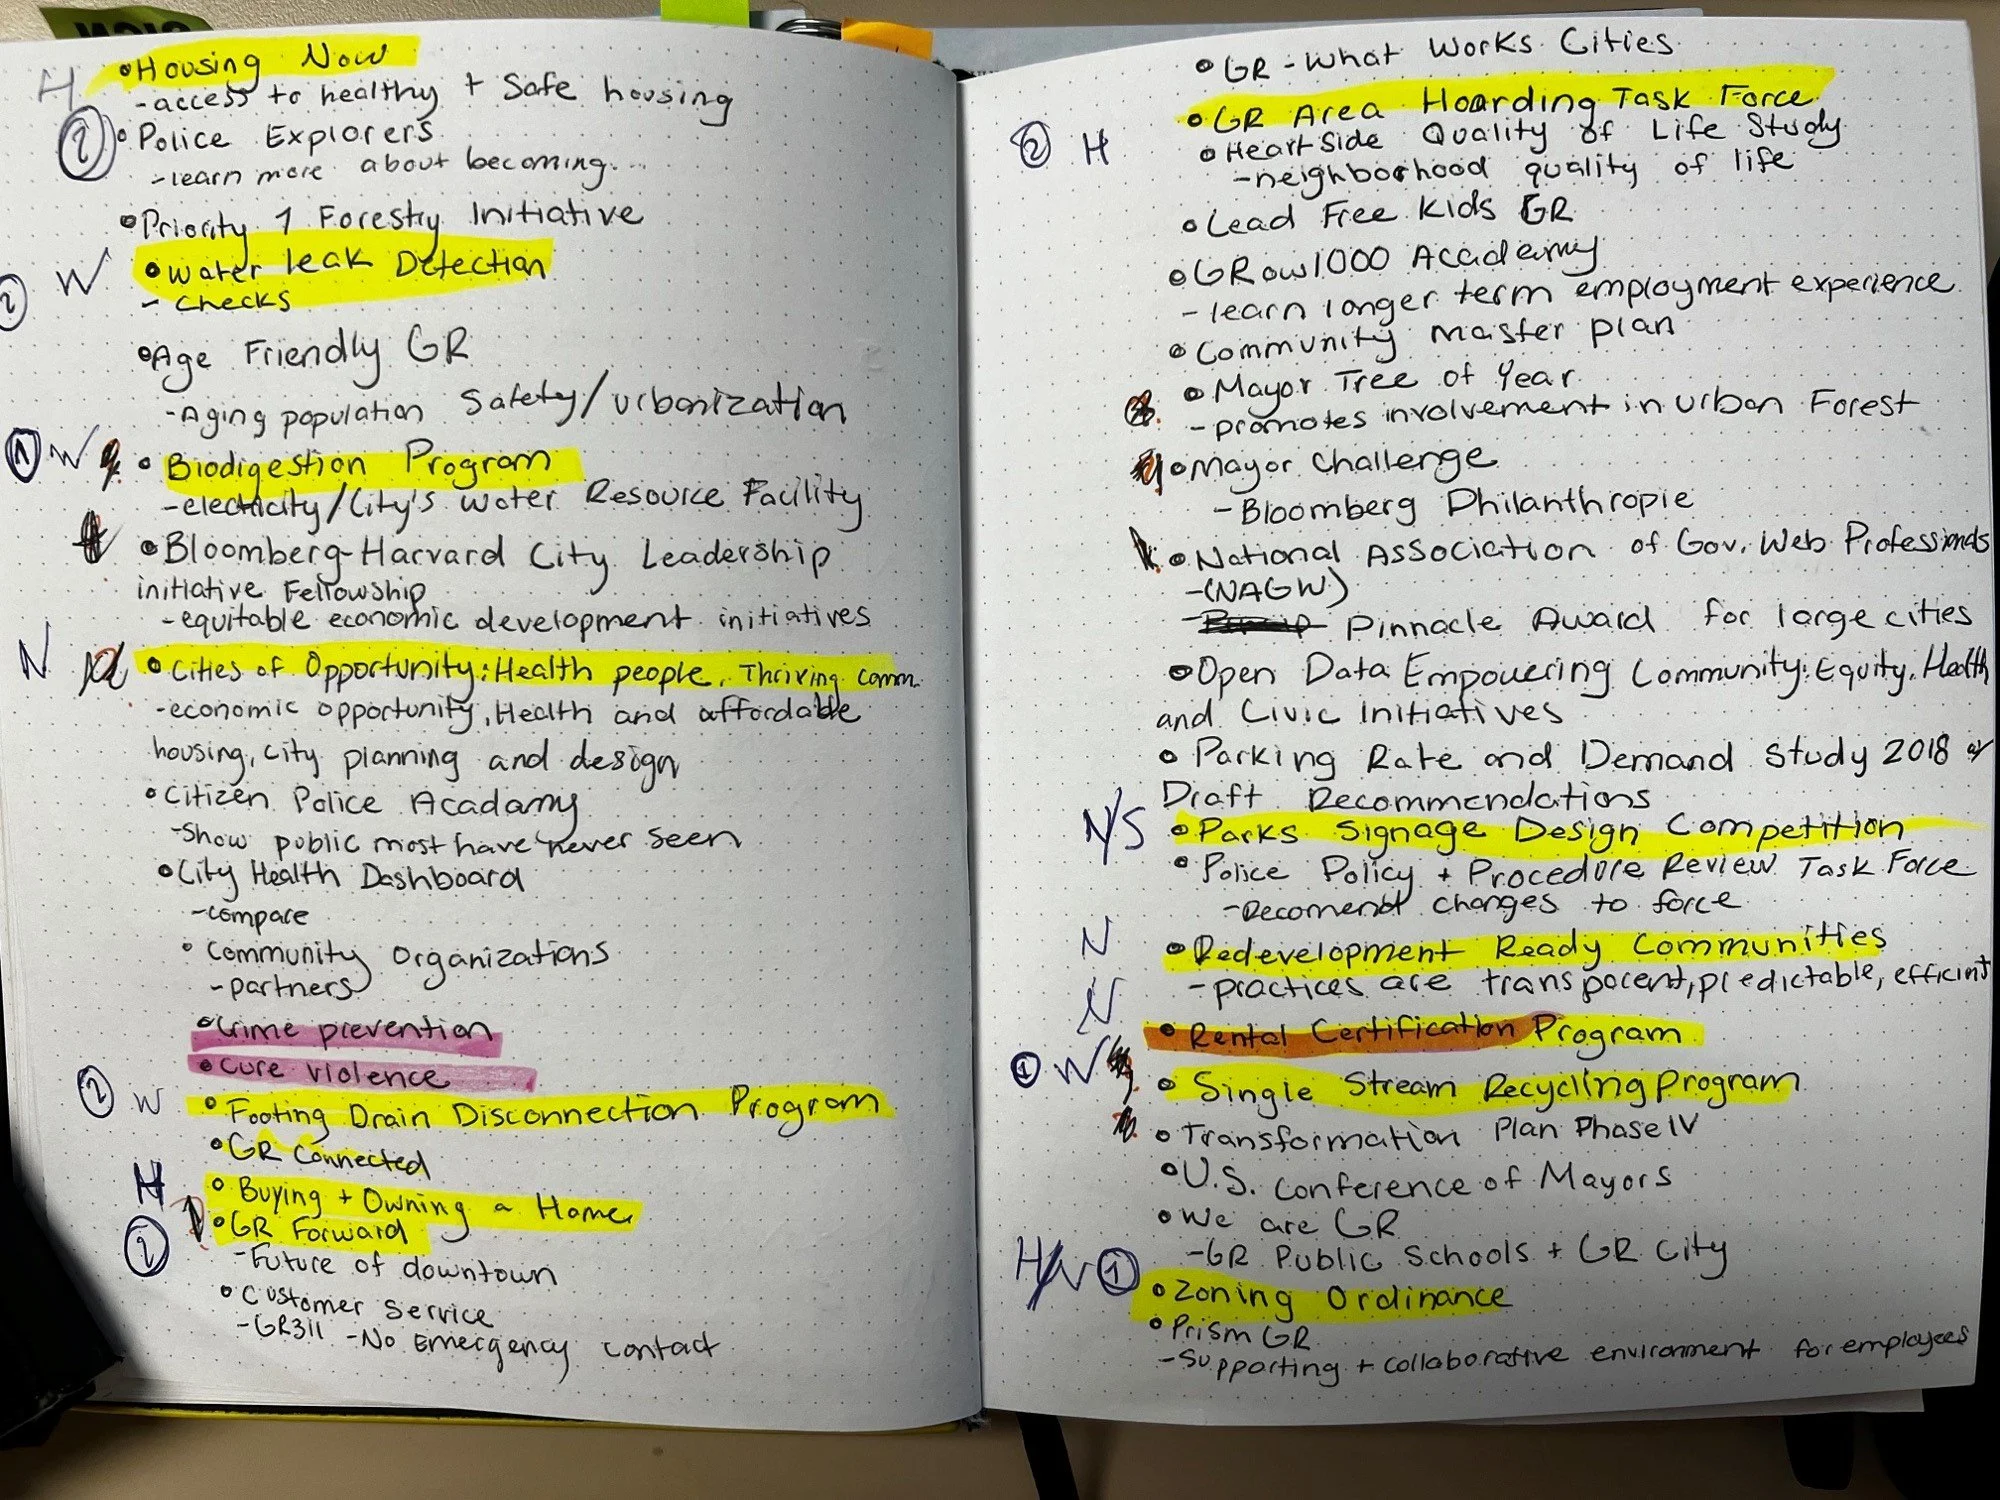 H •Housing Now
-access to healthy + safe housing
② •Police Explorers
-learn more about becoming...
•Priority 1 Forestry Initiative
② W •Water leak Detection
- checks
•Age Friendly GR
-Aging population safety/urbanization
① W • Biodigestion Program
-electricity/City's Water Resource Facility
•Bloomberg-Harvard City Leadership
initiative Fellowship
-equitable economic development initiatives
N • Cities of Opportunity: Health people, Thriving comm.
-economic opportunity, Health and affordable
housing, city planning and design
•Citizen Police Acadamy
-show public most have never seen
•City Health Dashboard
-compare
• Community Organizations
-partners
•Crime prevention
•Cure violence
② W • Footing Drain Disconnection Program
•GR Connected
H • Buying + Owning a Home
② •GR Forward
-Future of downtown
•Customer Service
-GR311 -No Emergency contact
•GR-What Works Cities
•GR Area Hoarding Task Force
② H •Heartside Quality of Life Study
-neighborhood quality of life
•Lead Free Kids GR
•GRow1000 Academy
-learn longer term employment experience
•Community master plan
• Mayor Tree of Year
-promotes involvement in urban Forest
•Mayor Challenge
-Bloomberg Philanthropie
•National Association of Gov. Web Professionals
-(NAGW)
- Pinnacle Award for large cities
•Open Data Empowering Community: Equity, Health
and Civic Initiatives
• Parking Rate and Demand Study 2018
Draft Recommendations
N/S •Parks Signage Design Competition
•Police Policy + Procedure Review Task Force
-Recomend changes to force
N •Redevelopment Ready Communities
-practices are transparent, predictable, efficint
N •Rental Certification Program
① W • Single Stream Recycling program
• Transformation Plan Phase IV
•U.S. Conference of Mayors
•We are GR
-GR Public Schools + GR City
H/N ① •Zoning Ordinance
•Prism GR
-supporting + collaborative environment for employees